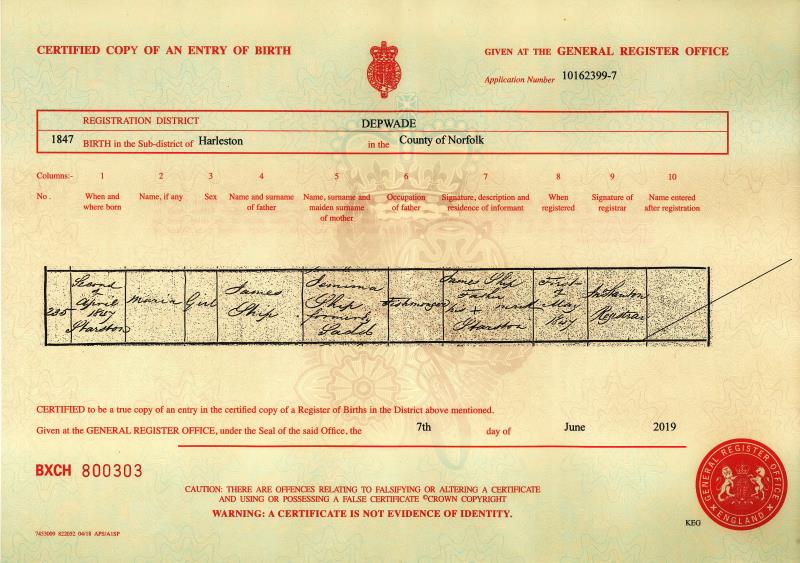 CERTIFIED COPY OF AN ENTRY OF BIRTH
GIVEN AT THE GENERAL REGISTER OFFICE
Application Number 10162399-7
REGISTRATION DISTRICT DEPWADE
1847 BIRTH in the Sub-district of Harleston in the County of Norfolk
Columns:- 1 2 3 4 5 6 7 8 9 10
No. When and where born Name, if any Sex Name and surname of father Name, surname and maiden surname of mother Occupation of father Signature, description and residence of informant When registered Signature of registrar Name entered after registration
235 Second of April 1847 Starston Maria Girl James Ship Jemima Ship formerly Fishmonger James Ship Father his x mark Starston First of May 1847 Registrar
CERTIFIED to be a true copy of an entry in the certified copy of a Register of Births in the District above mentioned.
Given at the GENERAL REGISTER OFFICE, under the Seal of the said Office, the 7th day of June 2019
BXCH 800303
CAUTION: THERE ARE OFFENCES RELATING TO FALSIFYING OR ALTERING A CERTIFICATE
AND USING OR POSSESSING A FALSE CERTIFICATE ©CROWN COPYRIGHT
WARNING: A CERTIFICATE IS NOT EVIDENCE OF IDENTITY.
GENERAL REGISTER OFFICE
ENGLAND
KEG
7453009 822052 04/18 APS/A1SP